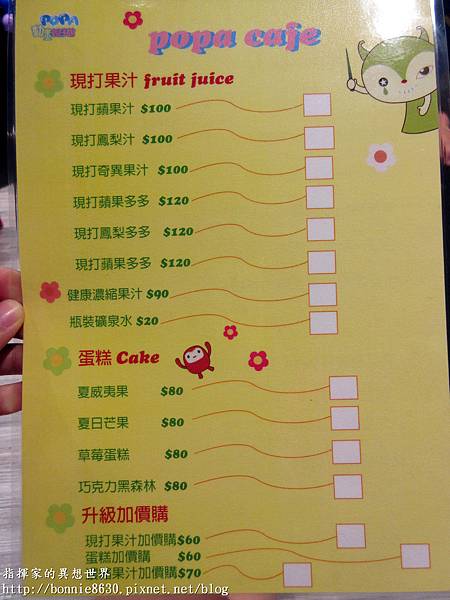 POPA
popa cafe
現打果汁 fruit juice
現打蘋果汁 $100
現打鳳梨汁 $100
現打奇異果汁 $100
現打蘋果多多 $120
現打鳳梨多多 $120
現打蘋果多多 $120
健康濃縮果汁 $90
瓶裝礦泉水 $20
蛋糕 Cake
夏威夷果 $80
夏日芒果 $80
草莓蛋糕 $80
巧克力黑森林 $80
升級加價購
現打果汁加價購$60
蛋糕加價購 $60
果汁加價購$70
指揮家的異想世界
http://bonnie8630.pixnet.net/blog